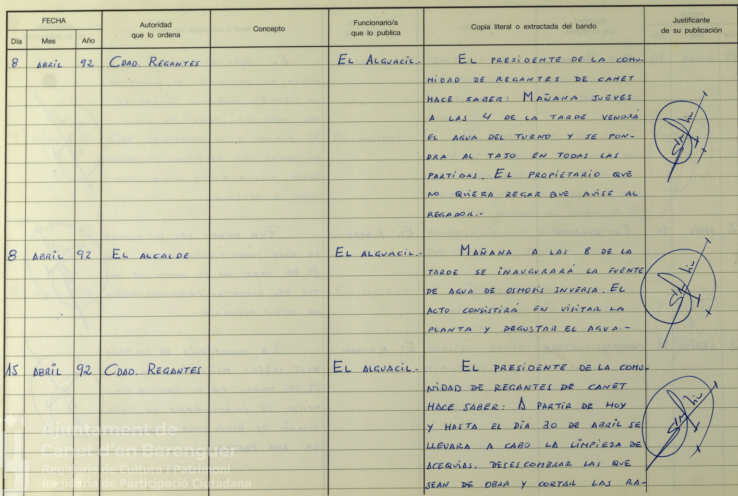 FECHA
Día Mes Año
Autoridad que lo ordena
Concepto
Funcionario/a que lo publica
Copia literal o extractada del bando
Justificante de su publicación
8 ABRIL 92 CDAD. REGANTES EL ALGUACIL.- EL PRESIDENTE DE LA COMU-
NIDAD DE REGANTES DE CANET
HACE SABER: MAÑANA JUEVES
A LAS 4 DE LA TARDE VENDRÁ
EL AGUA DEL TURNO Y SE PON-
DRA AL TAJO EN TODAS LAS
PARTIDAS. EL PROPIETARIO QUE
NO QUIERA REGAR QUE AVISE AL
REGADOR.-
8 ABRIL 92 EL ALCALDE EL ALGUACIL.- MAÑANA A LAS 8 DE LA
TARDE SE INAUGURARÁ LA FUENTE
DE AGUA DE OSMOSIS INVERSA. EL
ACTO CONSISTIRÁ EN VISITAR LA
PLANTA Y DEGUSTAR EL AGUA.-
15 ABRIL 92 CDAD. REGANTES EL ALGUACIL.- EL PRESIDENTE DE LA COMU-
NIDAD DE REGANTES DE CANET
HACE SABER: A PARTIR DE HOY
Y HASTA EL DÍA 30 DE ABRIL SE
LLEVARA A CABO LA LIMPIEZA DE
ACEQUIAS, DESESCOMBRAR LAS QUE
SEAN DE OBRA Y CORTAR LAS RA-
Ajuntament de
Canet d'en Berenguer
Regidoria de Cultura i Patrimoni
Regidoria de Participació Ciutadana